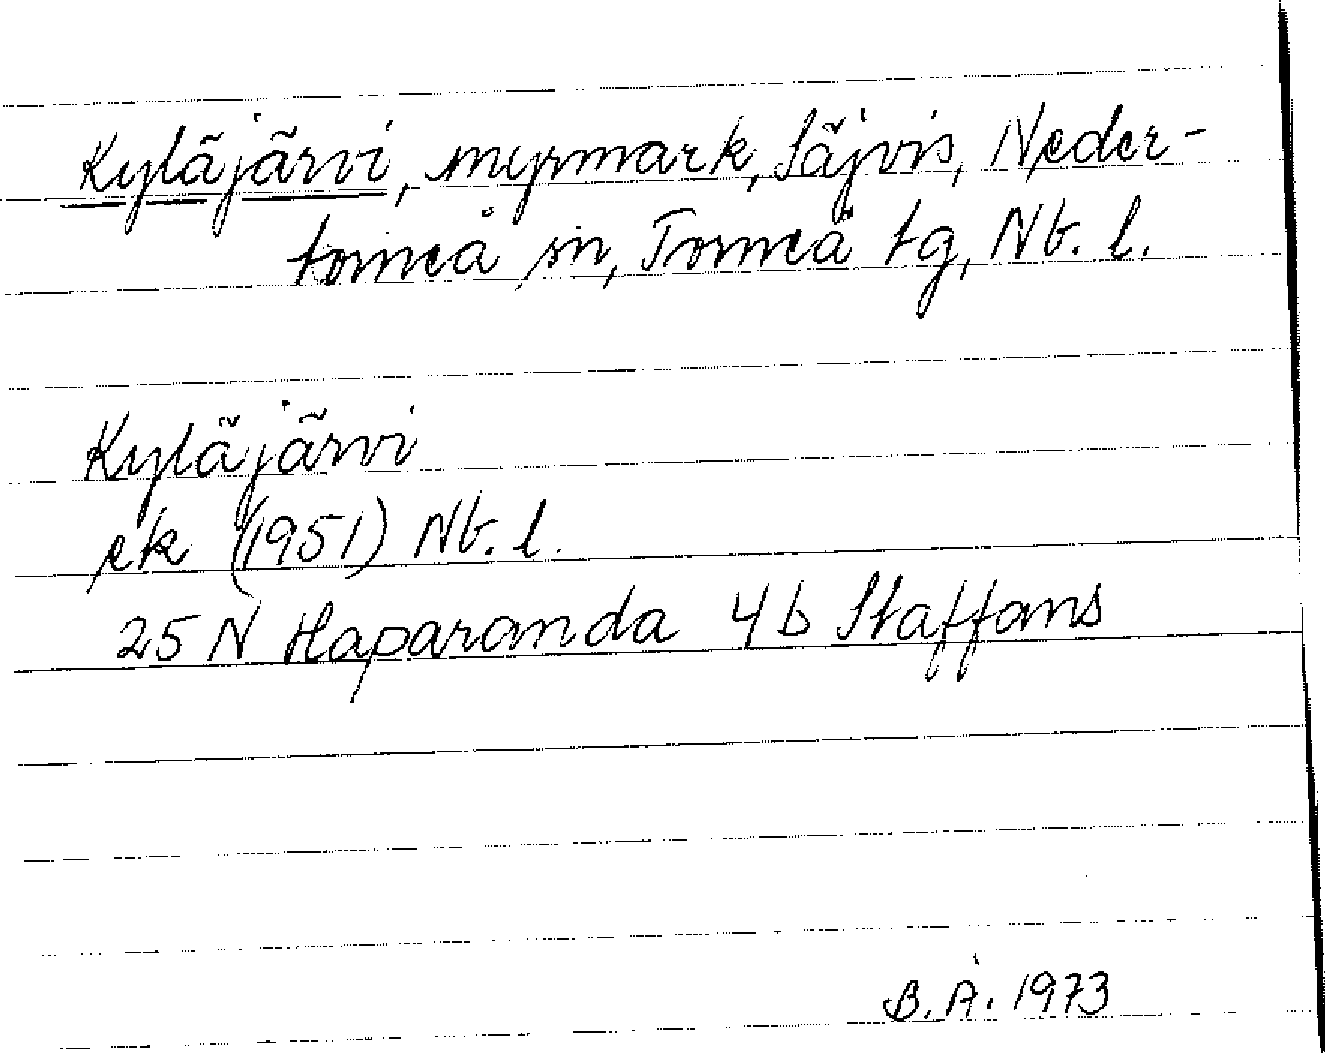 Kyläjärvi, myrmark, Säjvis, Neder-
torneå sn, Torneå tg, Nb. l.
Kyläjärvi
ek (1951) Nb. l.
25 N Haparanda 4 b Staffans
B. Å. 1973